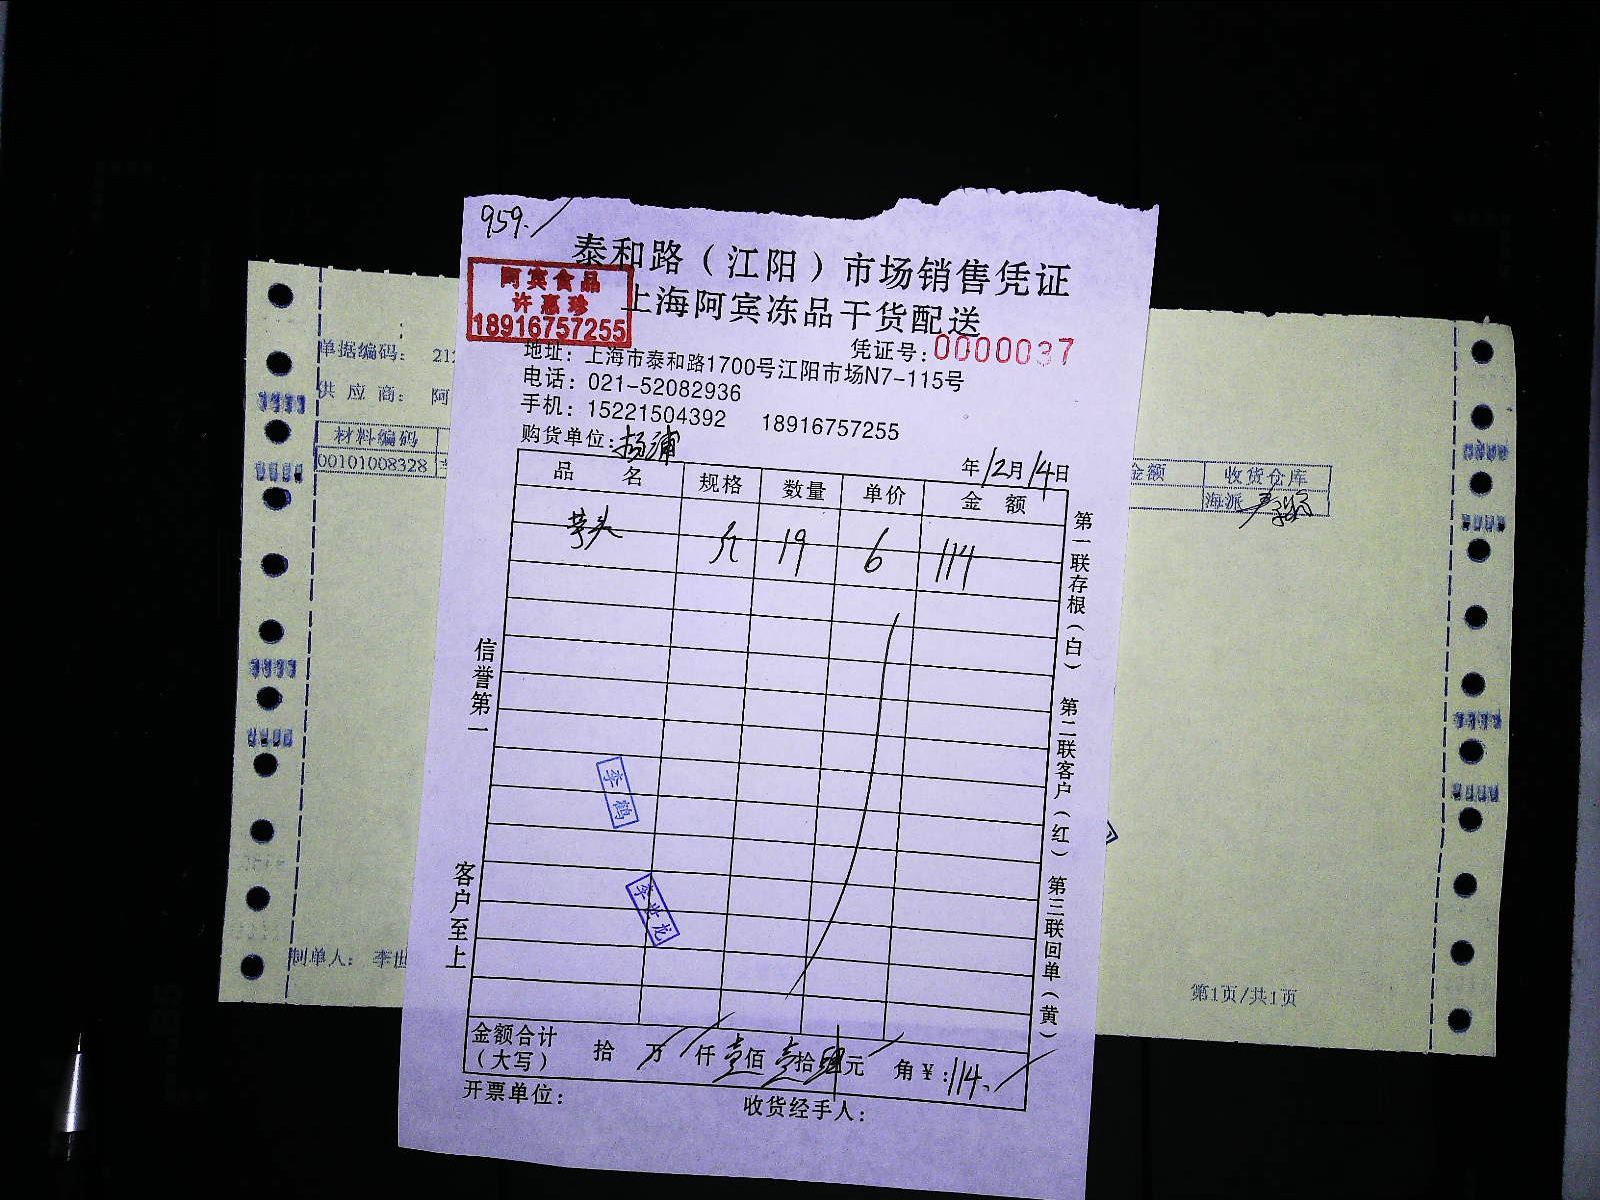 959.
泰和路（江阳）市场销售凭证
阿宾食品
许惠珍
18916757255
上海阿宾冻品干货配送
凭证号:0000037
地址：上海市泰和路1700号江阳市场N7-115号
电话：021-52082936
手机：15221504392 18916757255
购货单位:杨浦
年12月14日
品名 规格 数量 单价 金额
芋头 斤 19 6 114
第一联存根（白）
第二联客户（红）
第三联回单（黄）
信誉第一
客户至上
李鹤
李世龙
金额合计（大写） 拾 万 仟 壹佰 壹拾 肆元 角 ¥:114.
开票单位：
收货经手人：
单据编码： 212
供应商： 阿
材料编码
00101008328
金额 收货仓库
海派
制单人： 李世
第1页/共1页